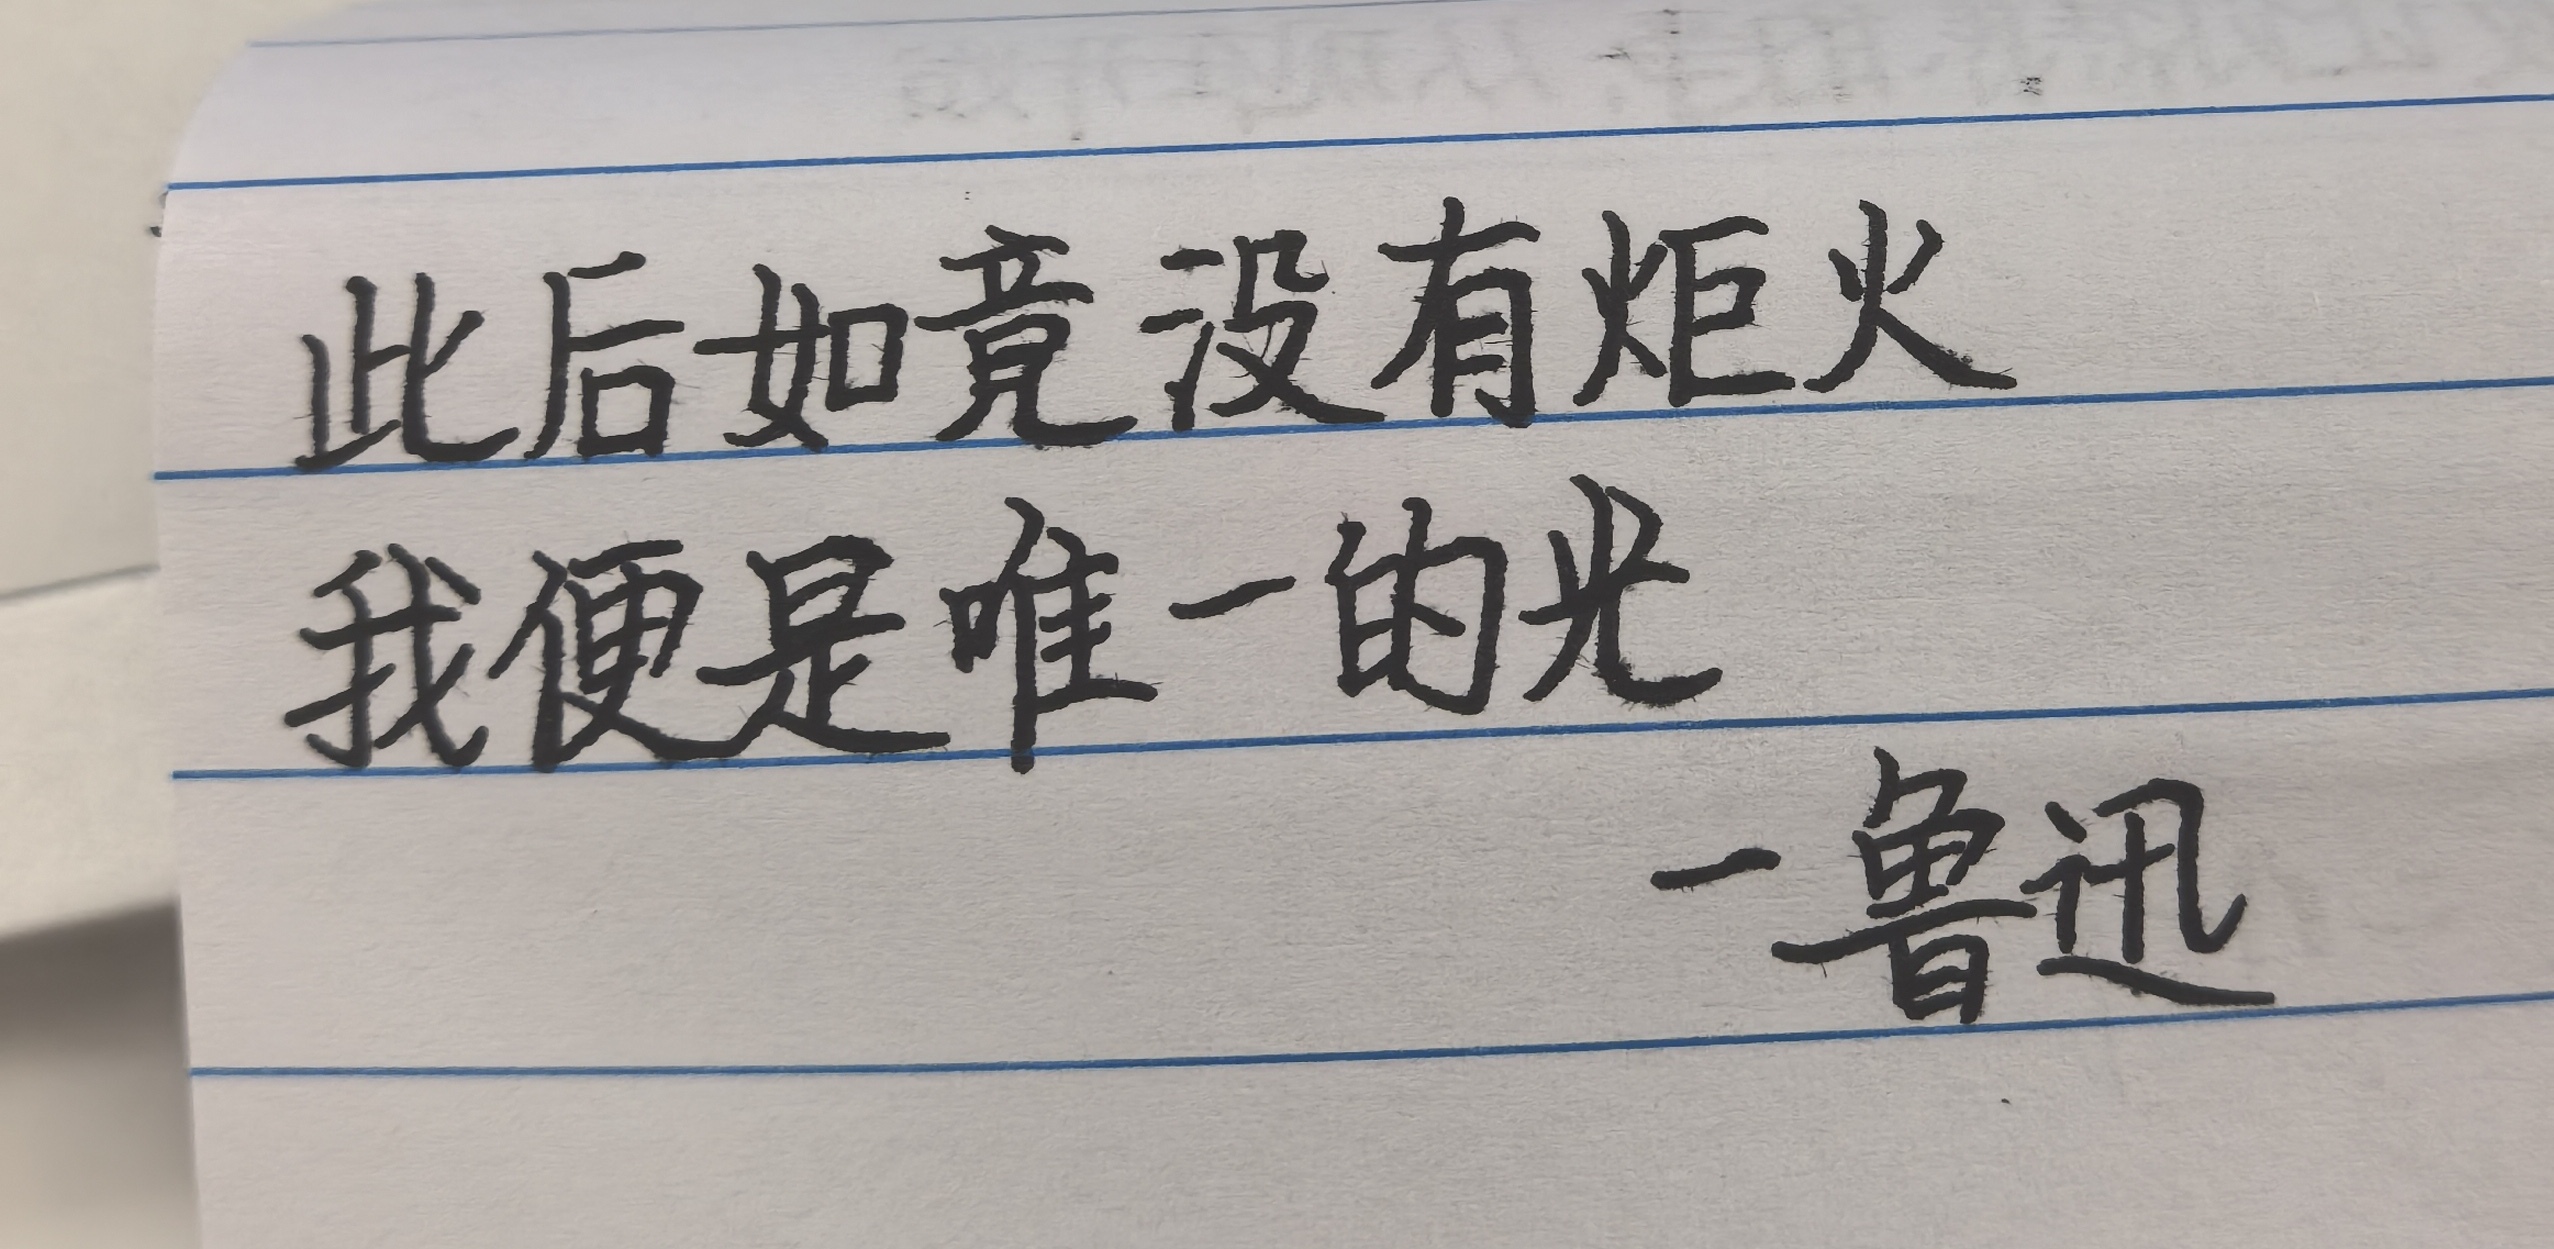 此后如竟没有炬火
我便是唯一的光
—鲁迅